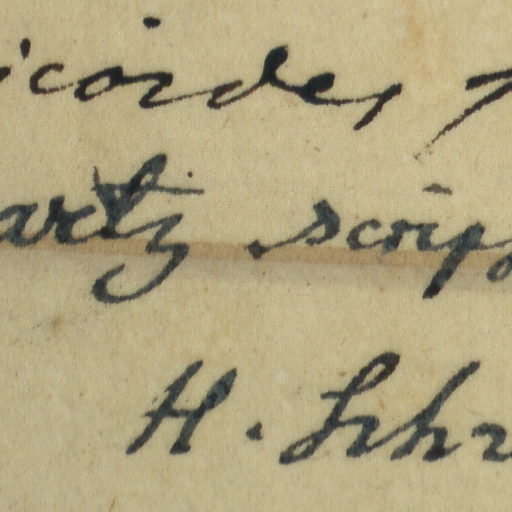 icoides
artz scrip
H. Schr